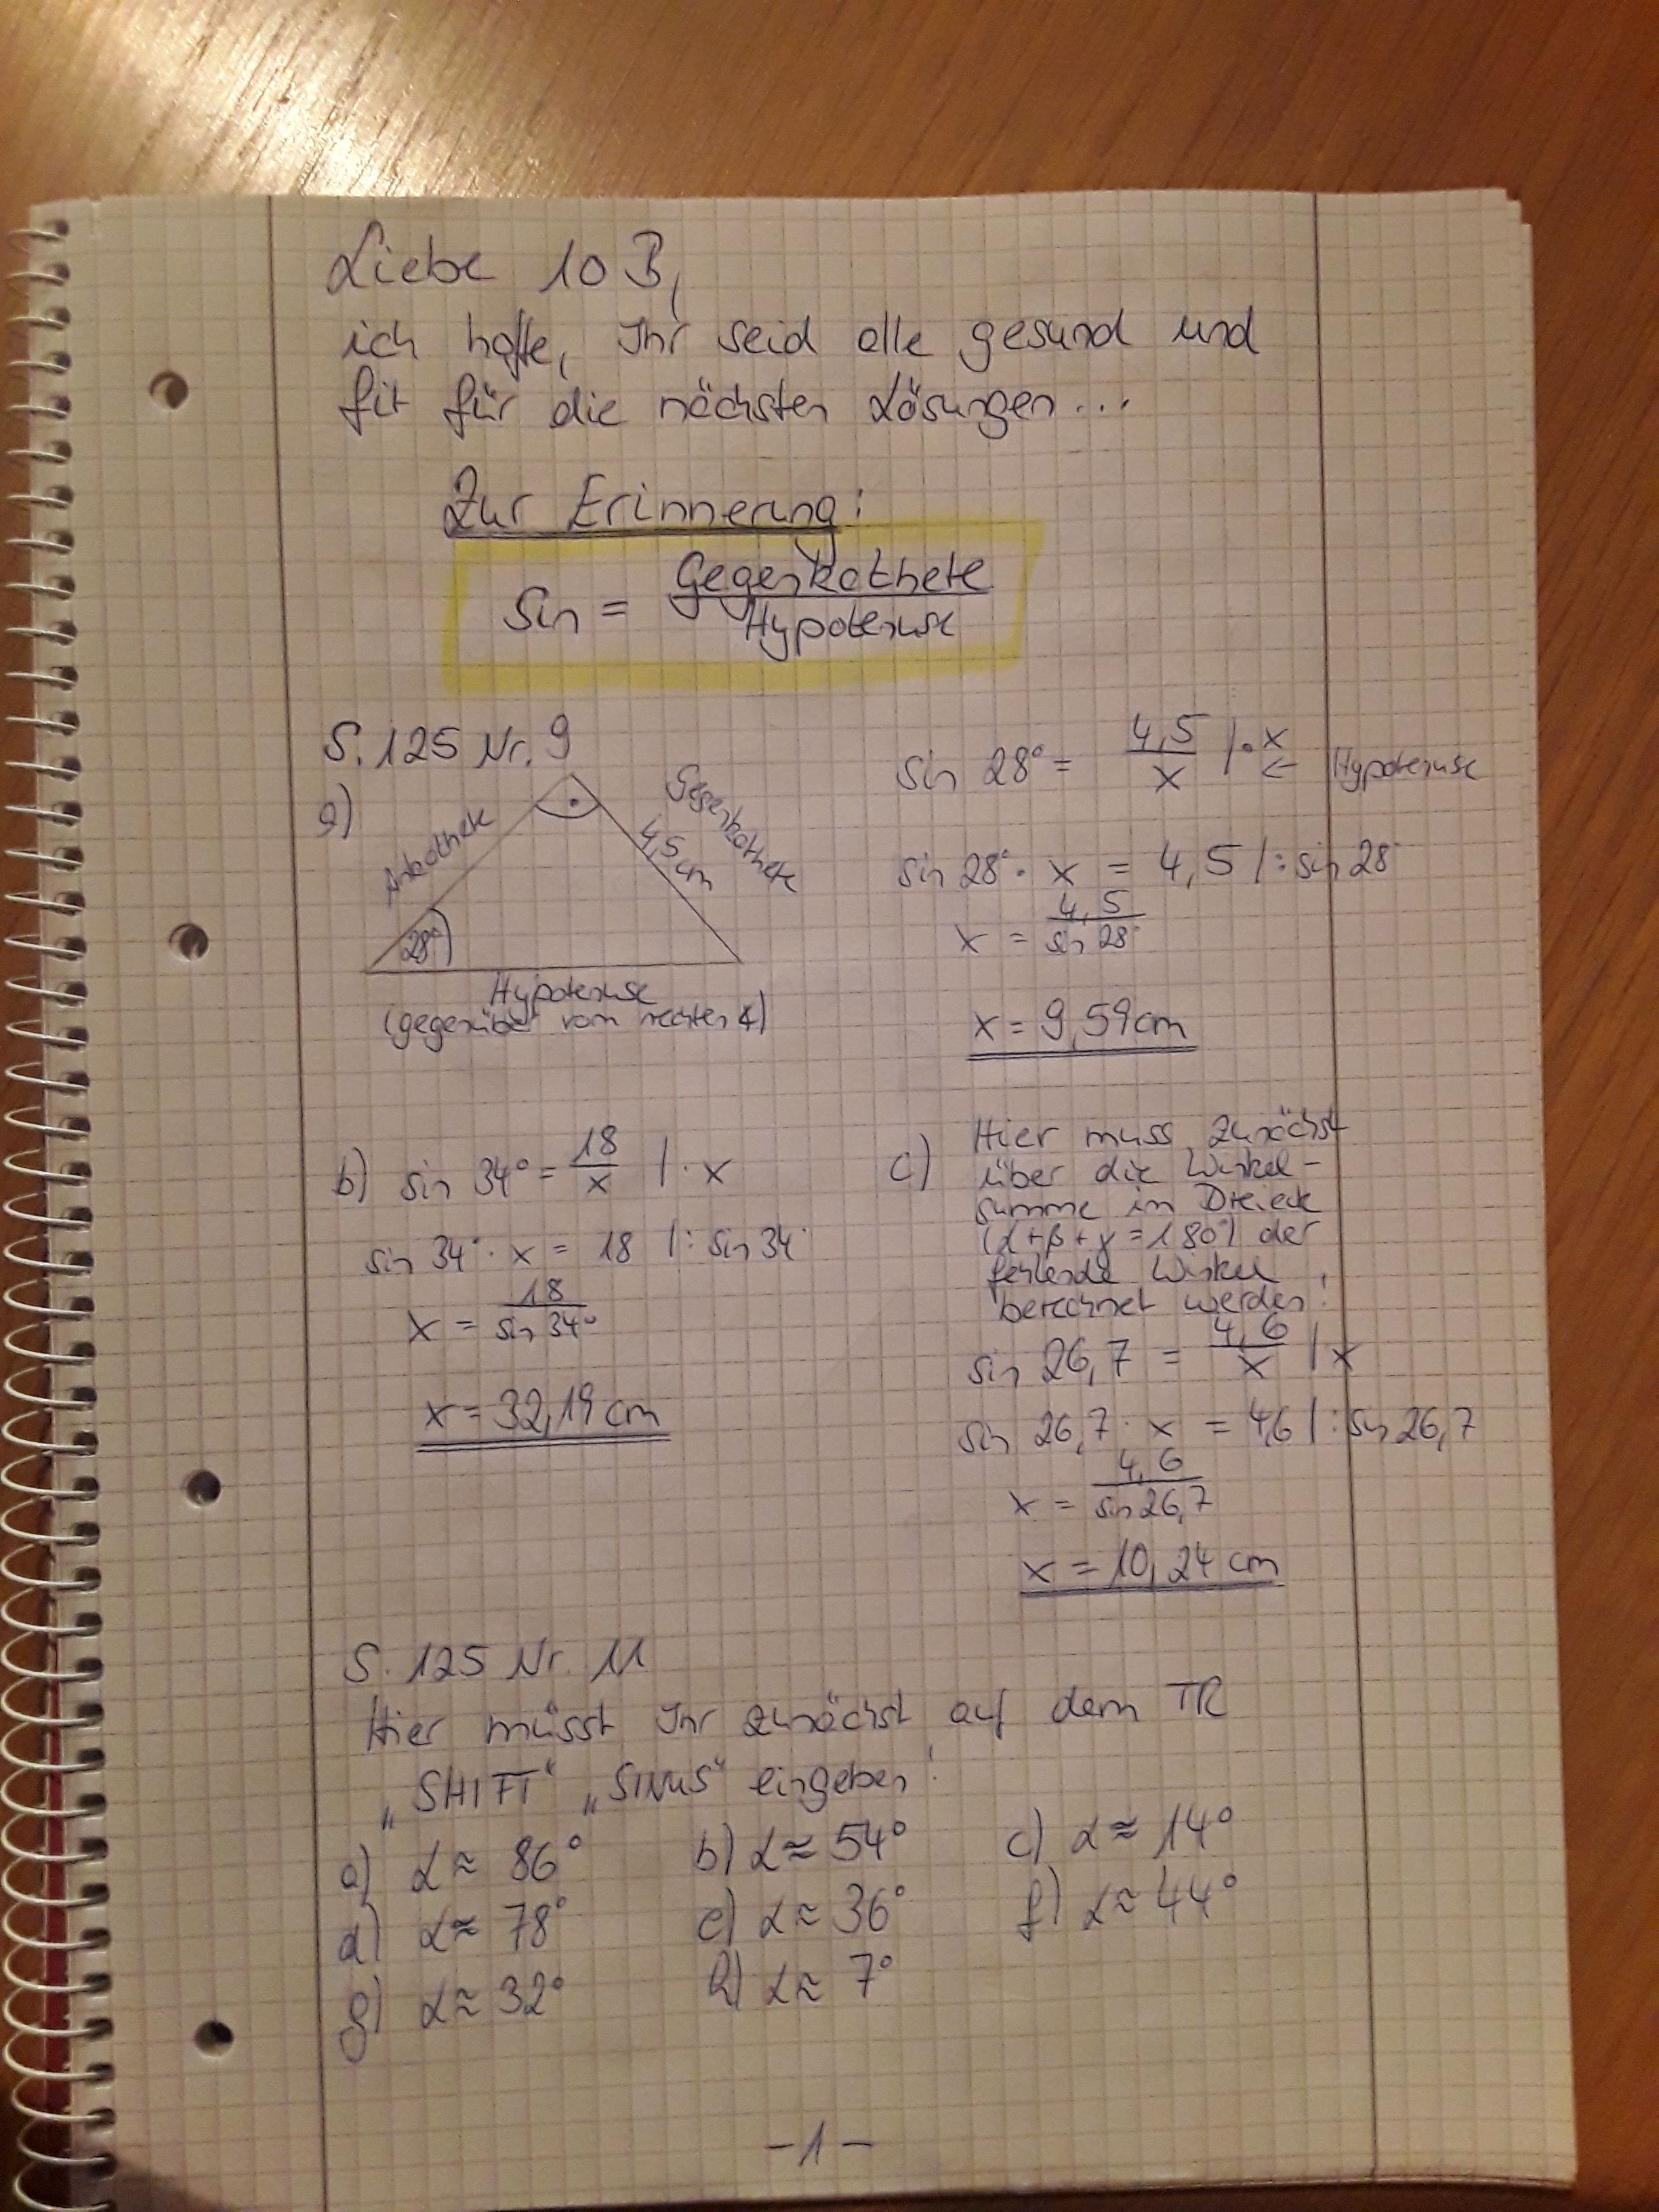 Liebe 10B,
ich hoffe, Ihr seid alle gesund und
fit für die nächsten Lösungen...
Zur Erinnerung:
sin = Gegenkathete
Hypotenuse
S. 125 Nr. 9
a)
Ankathete
Gegenkathete
4,5 cm
28°
Hypotenuse
(gegenüber vom rechten ∢)
sin 28° = 4,5/x | · x ← Hypotenuse
sin 28° · x = 4,5 | : sin 28°
x = 4,5/sin 28°
x = 9,59 cm
b) sin 34° = 18/x | · x
sin 34° · x = 18 | : sin 34°
x = 18/sin 34°
x = 32,19 cm
c) Hier muss zunächst
über die Winkel-
summe im Dreieck
(α + β + γ = 180°) der
fehlende Winkel
berechnet werden!
sin 26,7 = 4,6/x | x
sin 26,7 · x = 4,6 | : sin 26,7
x = 4,6/sin 26,7
x = 10,24 cm
S. 125 Nr. 11
Hier müsst Ihr zunächst auf dem TR
„SHIFT“ „SINUS“ eingeben!
a) α ≈ 86° b) α ≈ 54° c) α ≈ 14°
d) α ≈ 78° e) α ≈ 36° f) α ≈ 44°
g) α ≈ 32° h) α ≈ 7°
- 1 -